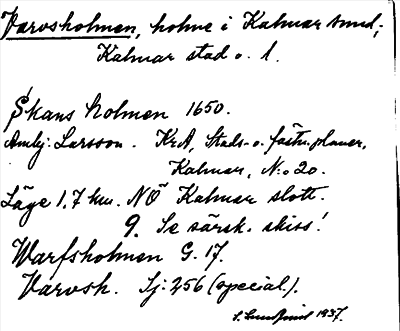 Varvsholmen, holme i Kalmar sund;
Kalmar stad o. l.
Skans holmen 1650.
Anbj: Larsson. KrA, Stads- o. fästn.planer,
Kalmar, N:o 20.
Läge 1,7 km. NÖ Kalmar slott.
9. Se särsk. skiss!
Warfsholmen G. 17.
Varvsh. Sj: 256 (special).
S. Lundqvist 1937.